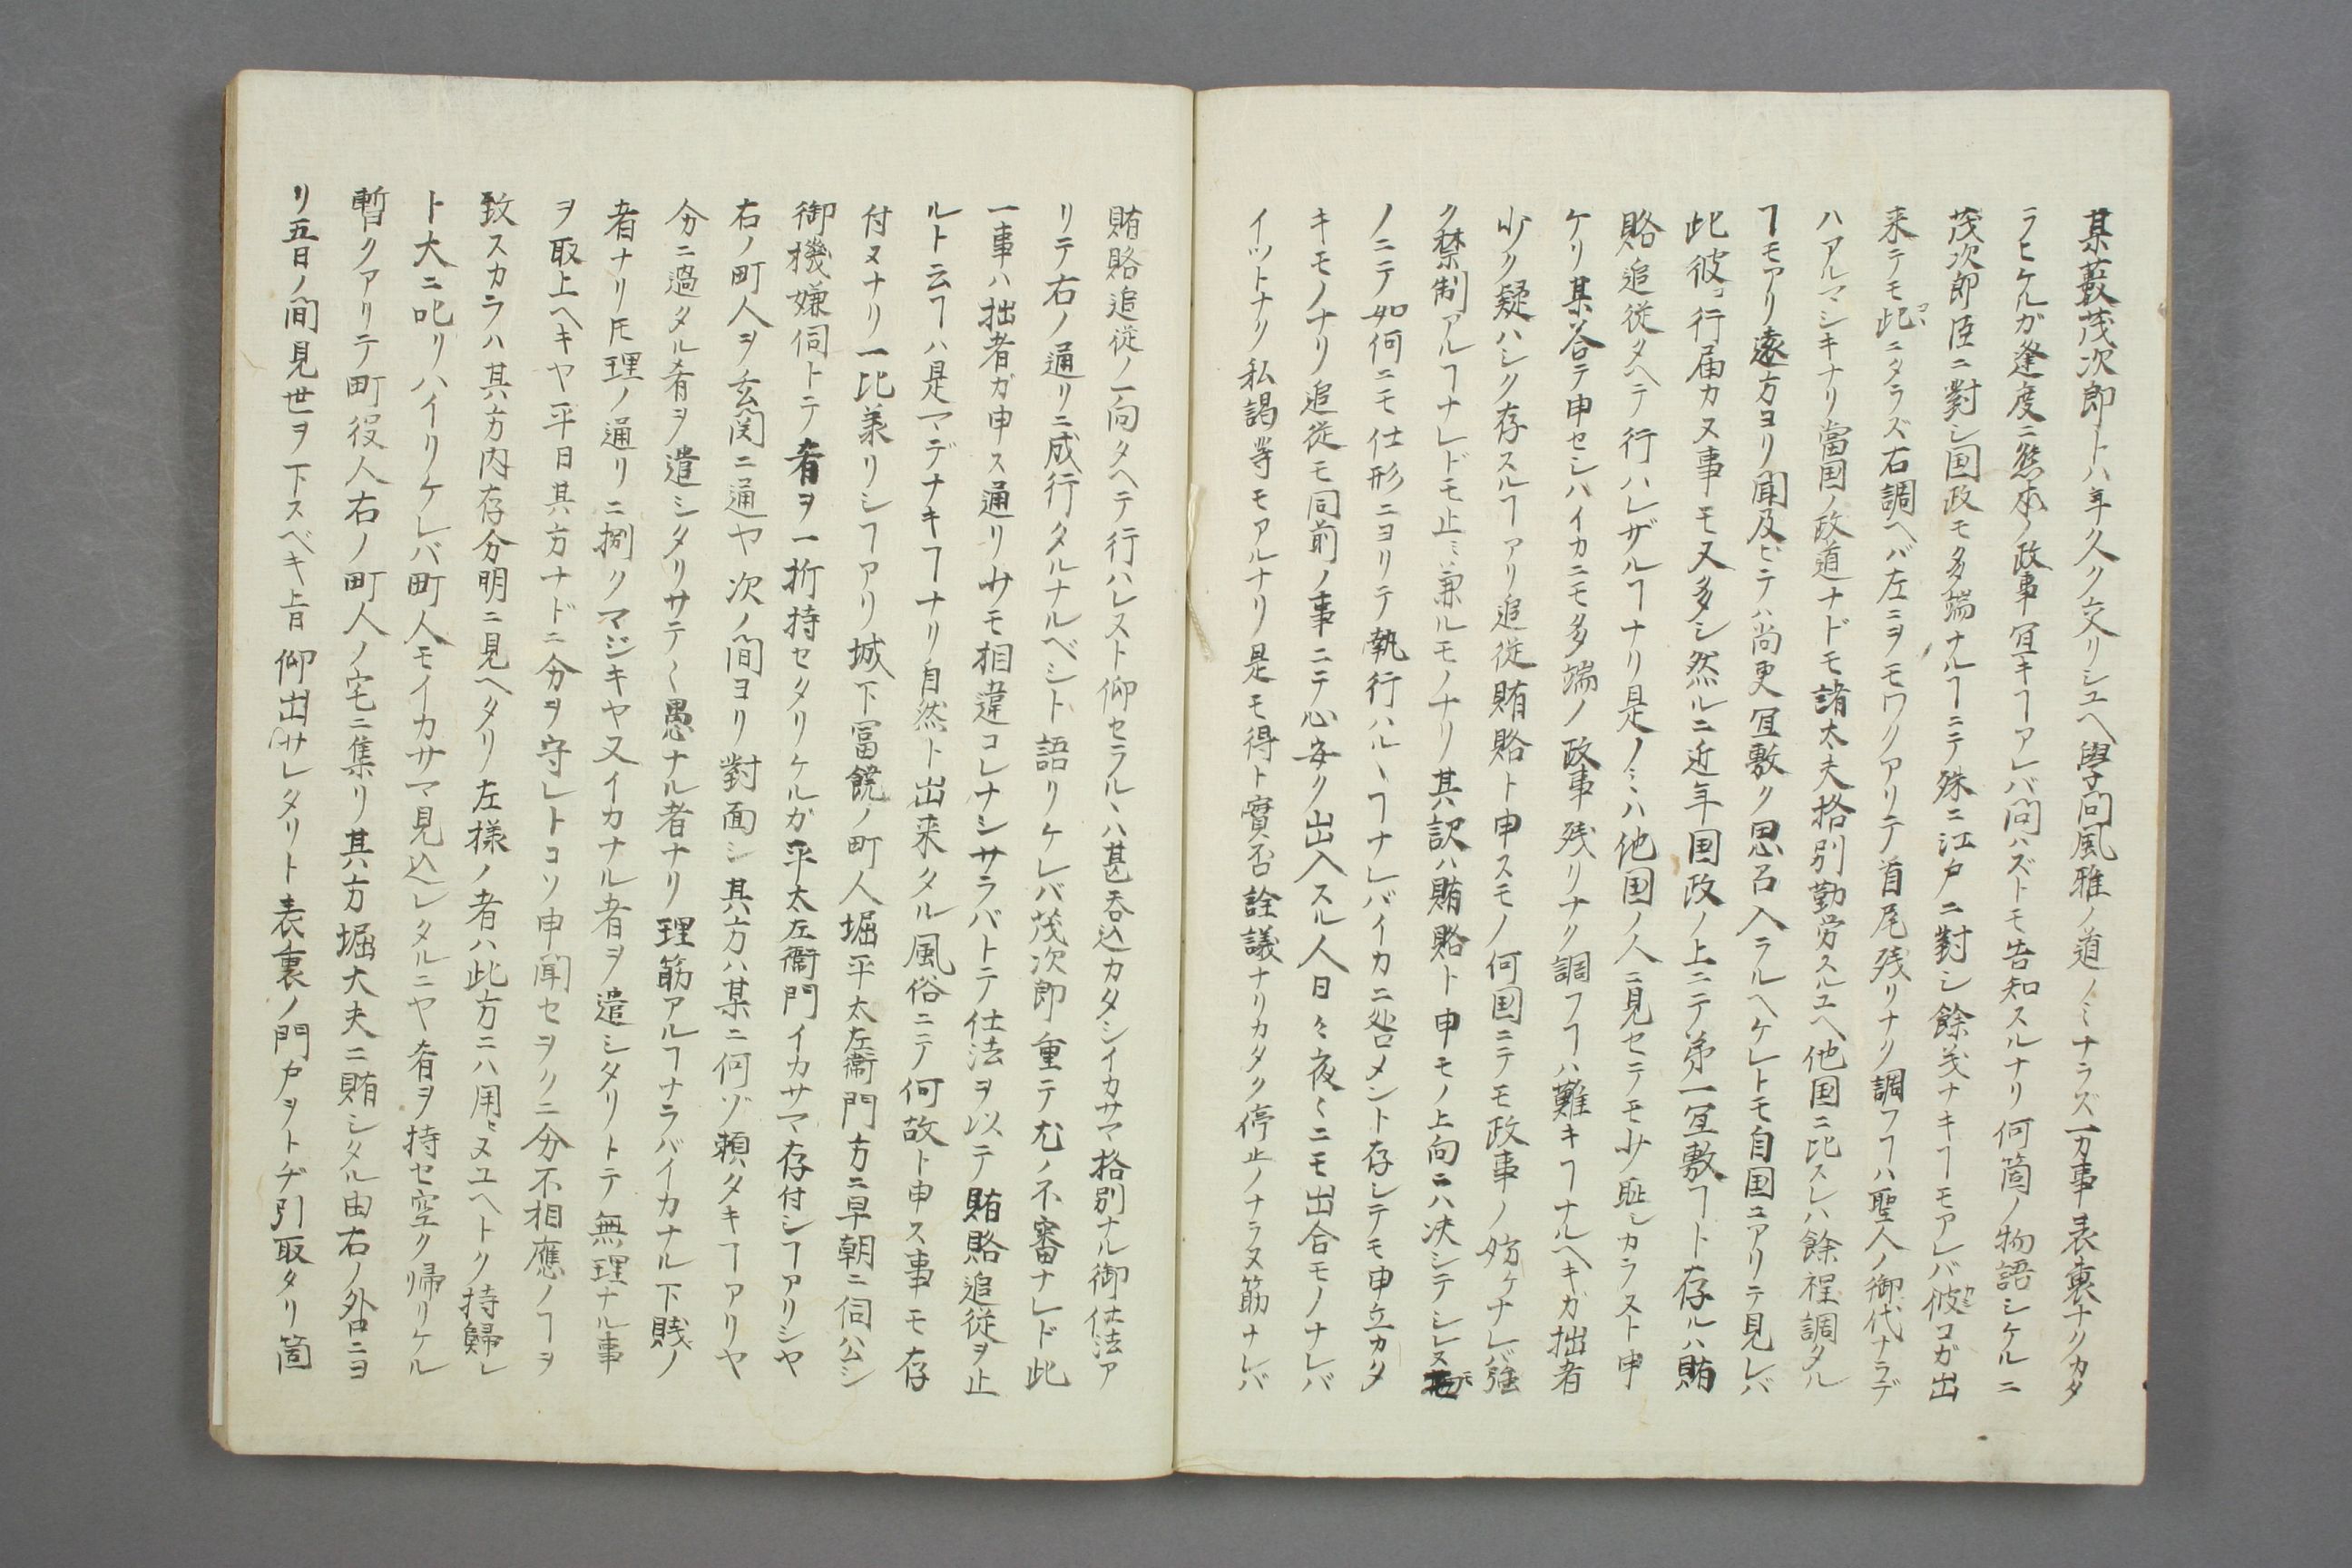 某藪茂次郎トハ年久ク交リシユヘ學問風雅ノ道ノミナラズ万事表裏ナクカタ
ラヒケルガ逢度ニ熊本ノ政事冝キヿアレバ問ハズトモ告知スルナリ何箇ノ物語シケルニ
茂次郎臣ニ對シ国政モ多端ナルヿニテ殊ニ江戸ニ對シ餘義ナキヿモアレバ彼コガ出
来テモ此ニタラズ右調ヘバ左ニヲモワクアリテ首尾残リナク調フヿハ聖人ノ御代ナラデ
ハアルマシキナリ當国ノ政道ナドモ諸太夫格別勤労スルユヘ他国ニ比スレハ餘程調タル
ヿモアリ遠方ヨリ聞及ヒテハ尚更冝敷ク思召入ラルヘケレトモ自国ニアリテ見レバ
此彼コ行届カヌ事モ又多シ然ルニ近年国政ノ上ニテ第一冝敷ヿト存ルハ賄
賂追従タヘテ行ハレザルヿナリ是ノミハ他国ノ人ニ見セテモ少耻シカラスト申
ケリ某答テ申セシハイカニモ多端ノ政事残リナク調フヿハ難キヿナルヘキガ拙者
少ク疑ハシク存スルヿアリ追従賄賂ト申スモノ何国ニテモ政事ノ妨ケナレバ強
ク禁制アルヿナレドモ止ミ兼ルモノナリ其訳ハ賄賂ト申モノ上向ニハ决シテシレヌモ
ノニテ如何ニモ仕形ニヨリテ執行ハルヽヿナレバイカニ咎メント存シテモ申立カタ
キモノナリ追従モ同前ノ事ニテ心安ク出入スル人日々夜々ニモ出合モノナレバ
イツトナリ私謁等モアルナリ是モ得ト實否詮議ナリカタク停止ノナラヌ筋ナレバ
賄賂追従ノ一向タヘテ行ハレスト仰セラルヽハ甚呑込カタシイカサマ格別ナル御仕法ア
リテ右ノ通リニ成行タルナルベシト語リケレバ茂次郎重テ尤ノ不審ナレド此
一事ハ拙者ガ申ス通リ少モ相違コレナシサラバトテ仕法ヲ以テ賄賂追従ヲ止
ルト云ヿハ是マデナキヿナリ自然ト出来タル風俗ニテ何故ト申ス事モ存
付ヌナリ一比義リシヿアリ城下冨饒ノ町人堀平太左衛門方ニ早朝ニ伺公シ
御機嫌伺トテ肴ヲ一折持セタリケルガ平太左衛門イカサマ存付シヿアリシヤ
右ノ町人ヲ玄関ニ通ヤ次ノ間ヨリ對面シ其方ハ某ニ何ゾ頼タキヿアリヤ
分ニ過タル肴ヲ遣シタリサテ〱愚ナル者ナリ理筋アルヿナラバイカナル下賤ノ
者ナリ𪜈理ノ通リニ捌クマジキヤ又イカナル者ヲ遣シタリトテ無理ナル事
ヲ取上ヘキヤ平日其方ナドニ分ヲ守レトコソ申聞セヲクニ分不相應ノヿヲ
致スカラハ其方内存分明ニ見ヘタリ左様ノ者ハ此方ニハ用ヒヌユヘトク持歸レ
ト大ニ叱リハイリケレバ町人モイカサマ見込レタルニヤ肴ヲ持セ空ク帰リケル
暫クアリテ町役人右ノ町人ノ宅ニ集リ其方堀大夫ニ賄シタル由右ノ咎ニヨ
リ五日ノ間見世ヲ下スベキ旨仰出サレタリト表裏ノ門戸ヲトヂ引取タリ箇